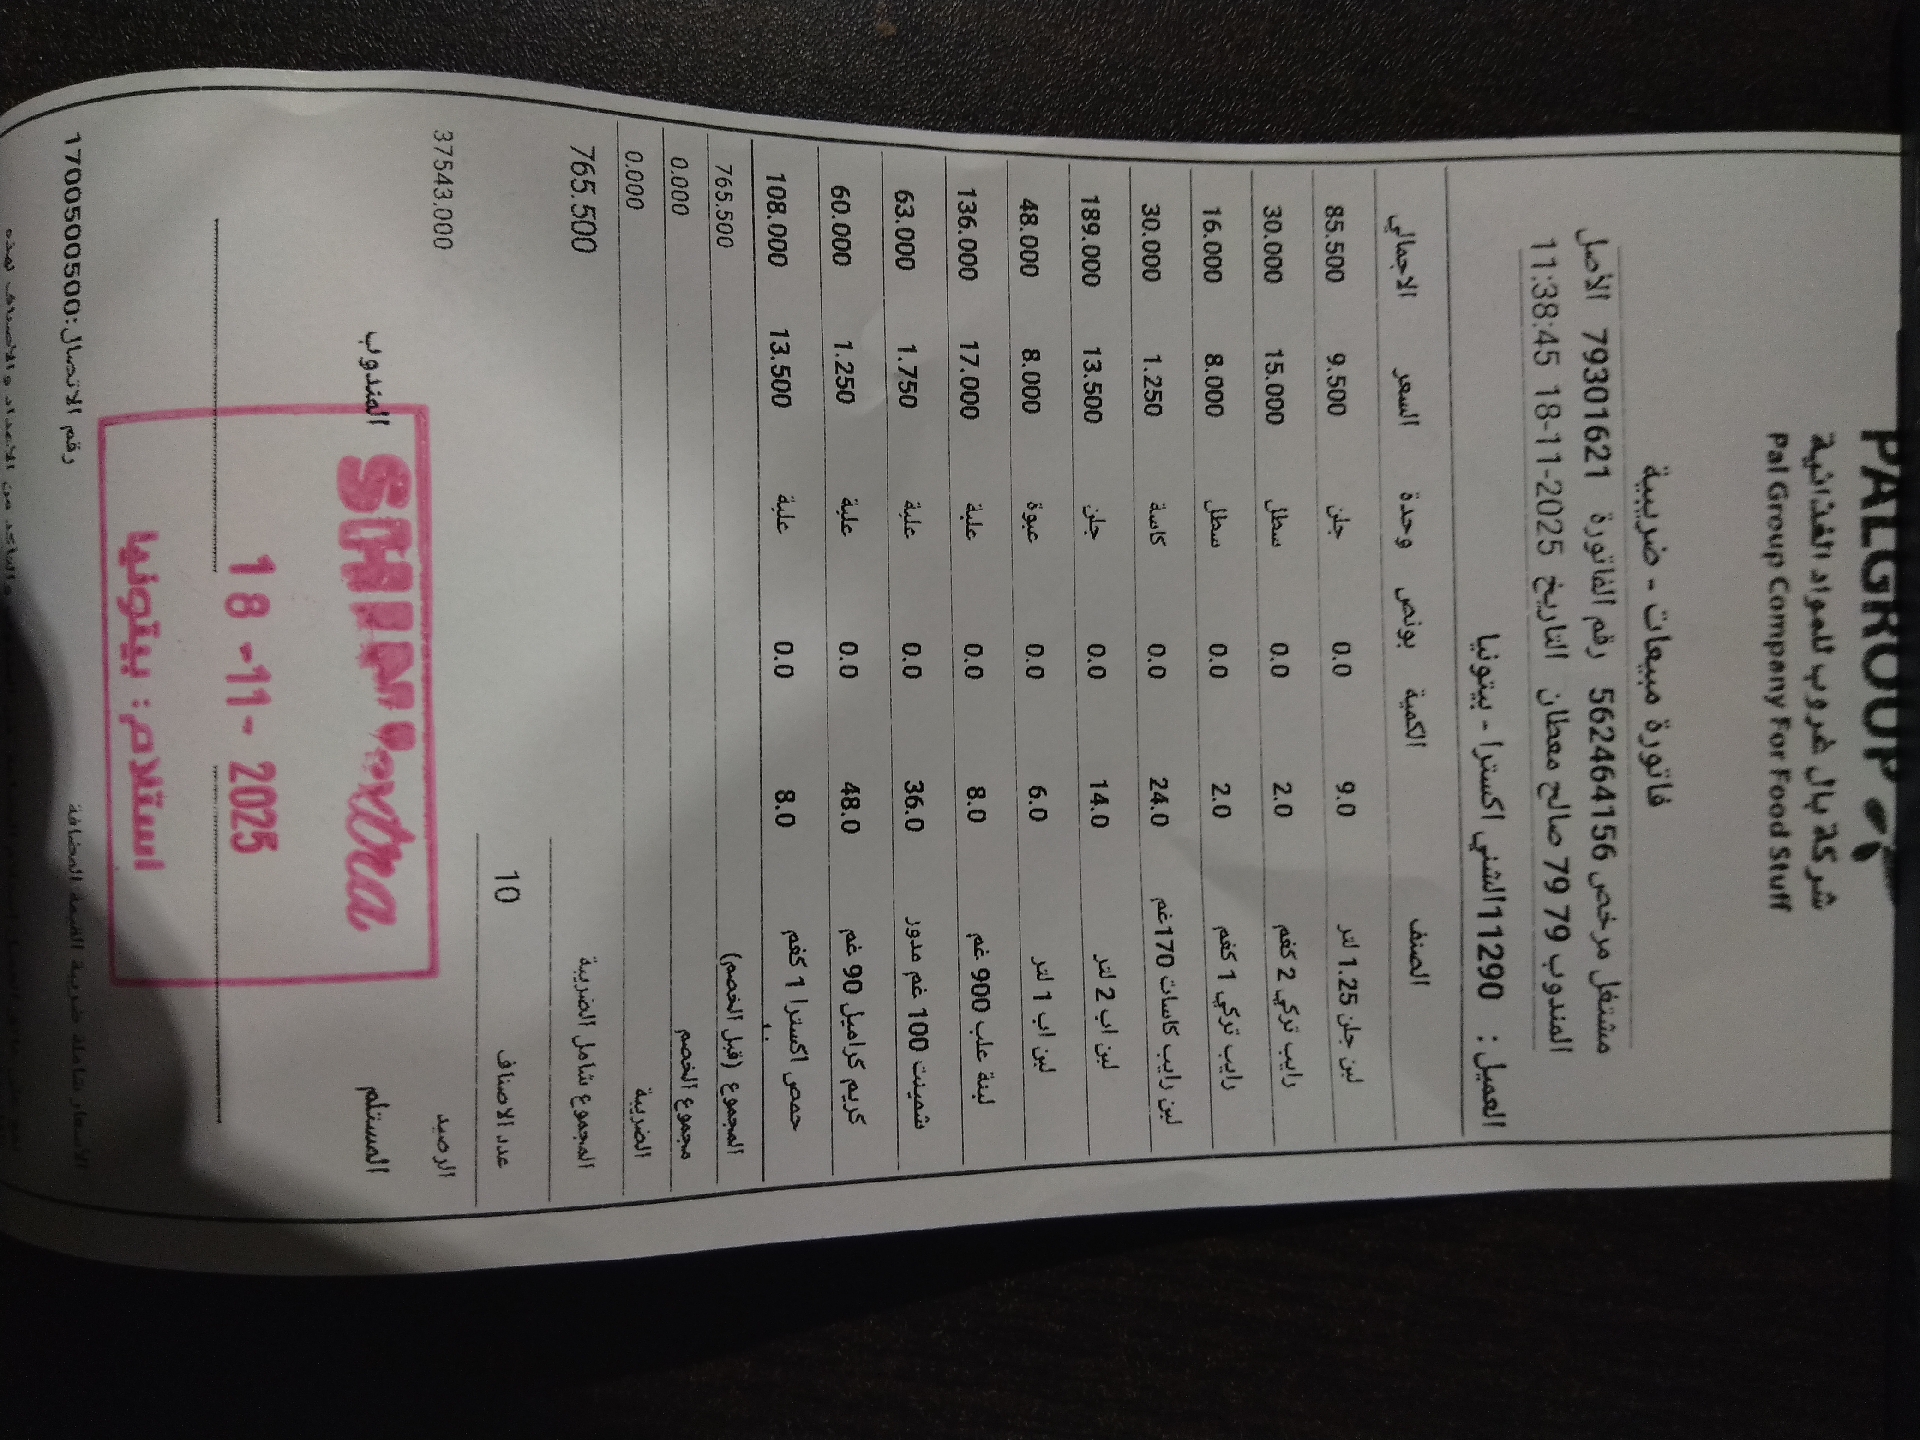 PALGROUP
شركة بال غروب للمواد الغذائية
Pal Group Company For Food Stuff
فاتورة مبيعات - ضريبية
مشتغل مرخص 562464156 رقم الفاتورة 79301621 الأصل
المندوب 79 79 صالح معطان التاريخ 2025-11-18 11:38:45
العميل : 11290الشني اكسترا - بيتونيا
الصنف الكمية بونص وحدة السعر الاجمالي
لبن جلن 1.25 لتر 9.0 0.0 جلن 9.500 85.500
رايب تركي 2 كغم 2.0 0.0 سطل 15.000 30.000
رايب تركي 1 كغم 2.0 0.0 سطل 8.000 16.000
لبن رايب كاسات 170غم 24.0 0.0 كاسة 1.250 30.000
لبن اب 2 لتر 14.0 0.0 جلن 13.500 189.000
لبن اب 1 لتر 6.0 0.0 عبوة 8.000 48.000
لبنة علب 900 غم 8.0 0.0 علبة 17.000 136.000
شمينت 100 غم مدور 36.0 0.0 علبة 1.750 63.000
كريم كراميل 90 غم 48.0 0.0 علبة 1.250 60.000
حمص اكسترا 1 كغم 8.0 0.0 علبة 13.500 108.000
المجموع (قبل الخصم) 765.500
مجموع الخصم 0.000
الضريبة 0.000
المجموع شامل الضريبة 765.500
عدد الاصناف 10
الرصيد 37543.000
المستلم المندوب
SHINI extra
18 -11- 2025
استلام: بيتونيا
الأسعار شاملة ضريبة القيمة المضافة رقم الاتصال:1700500500